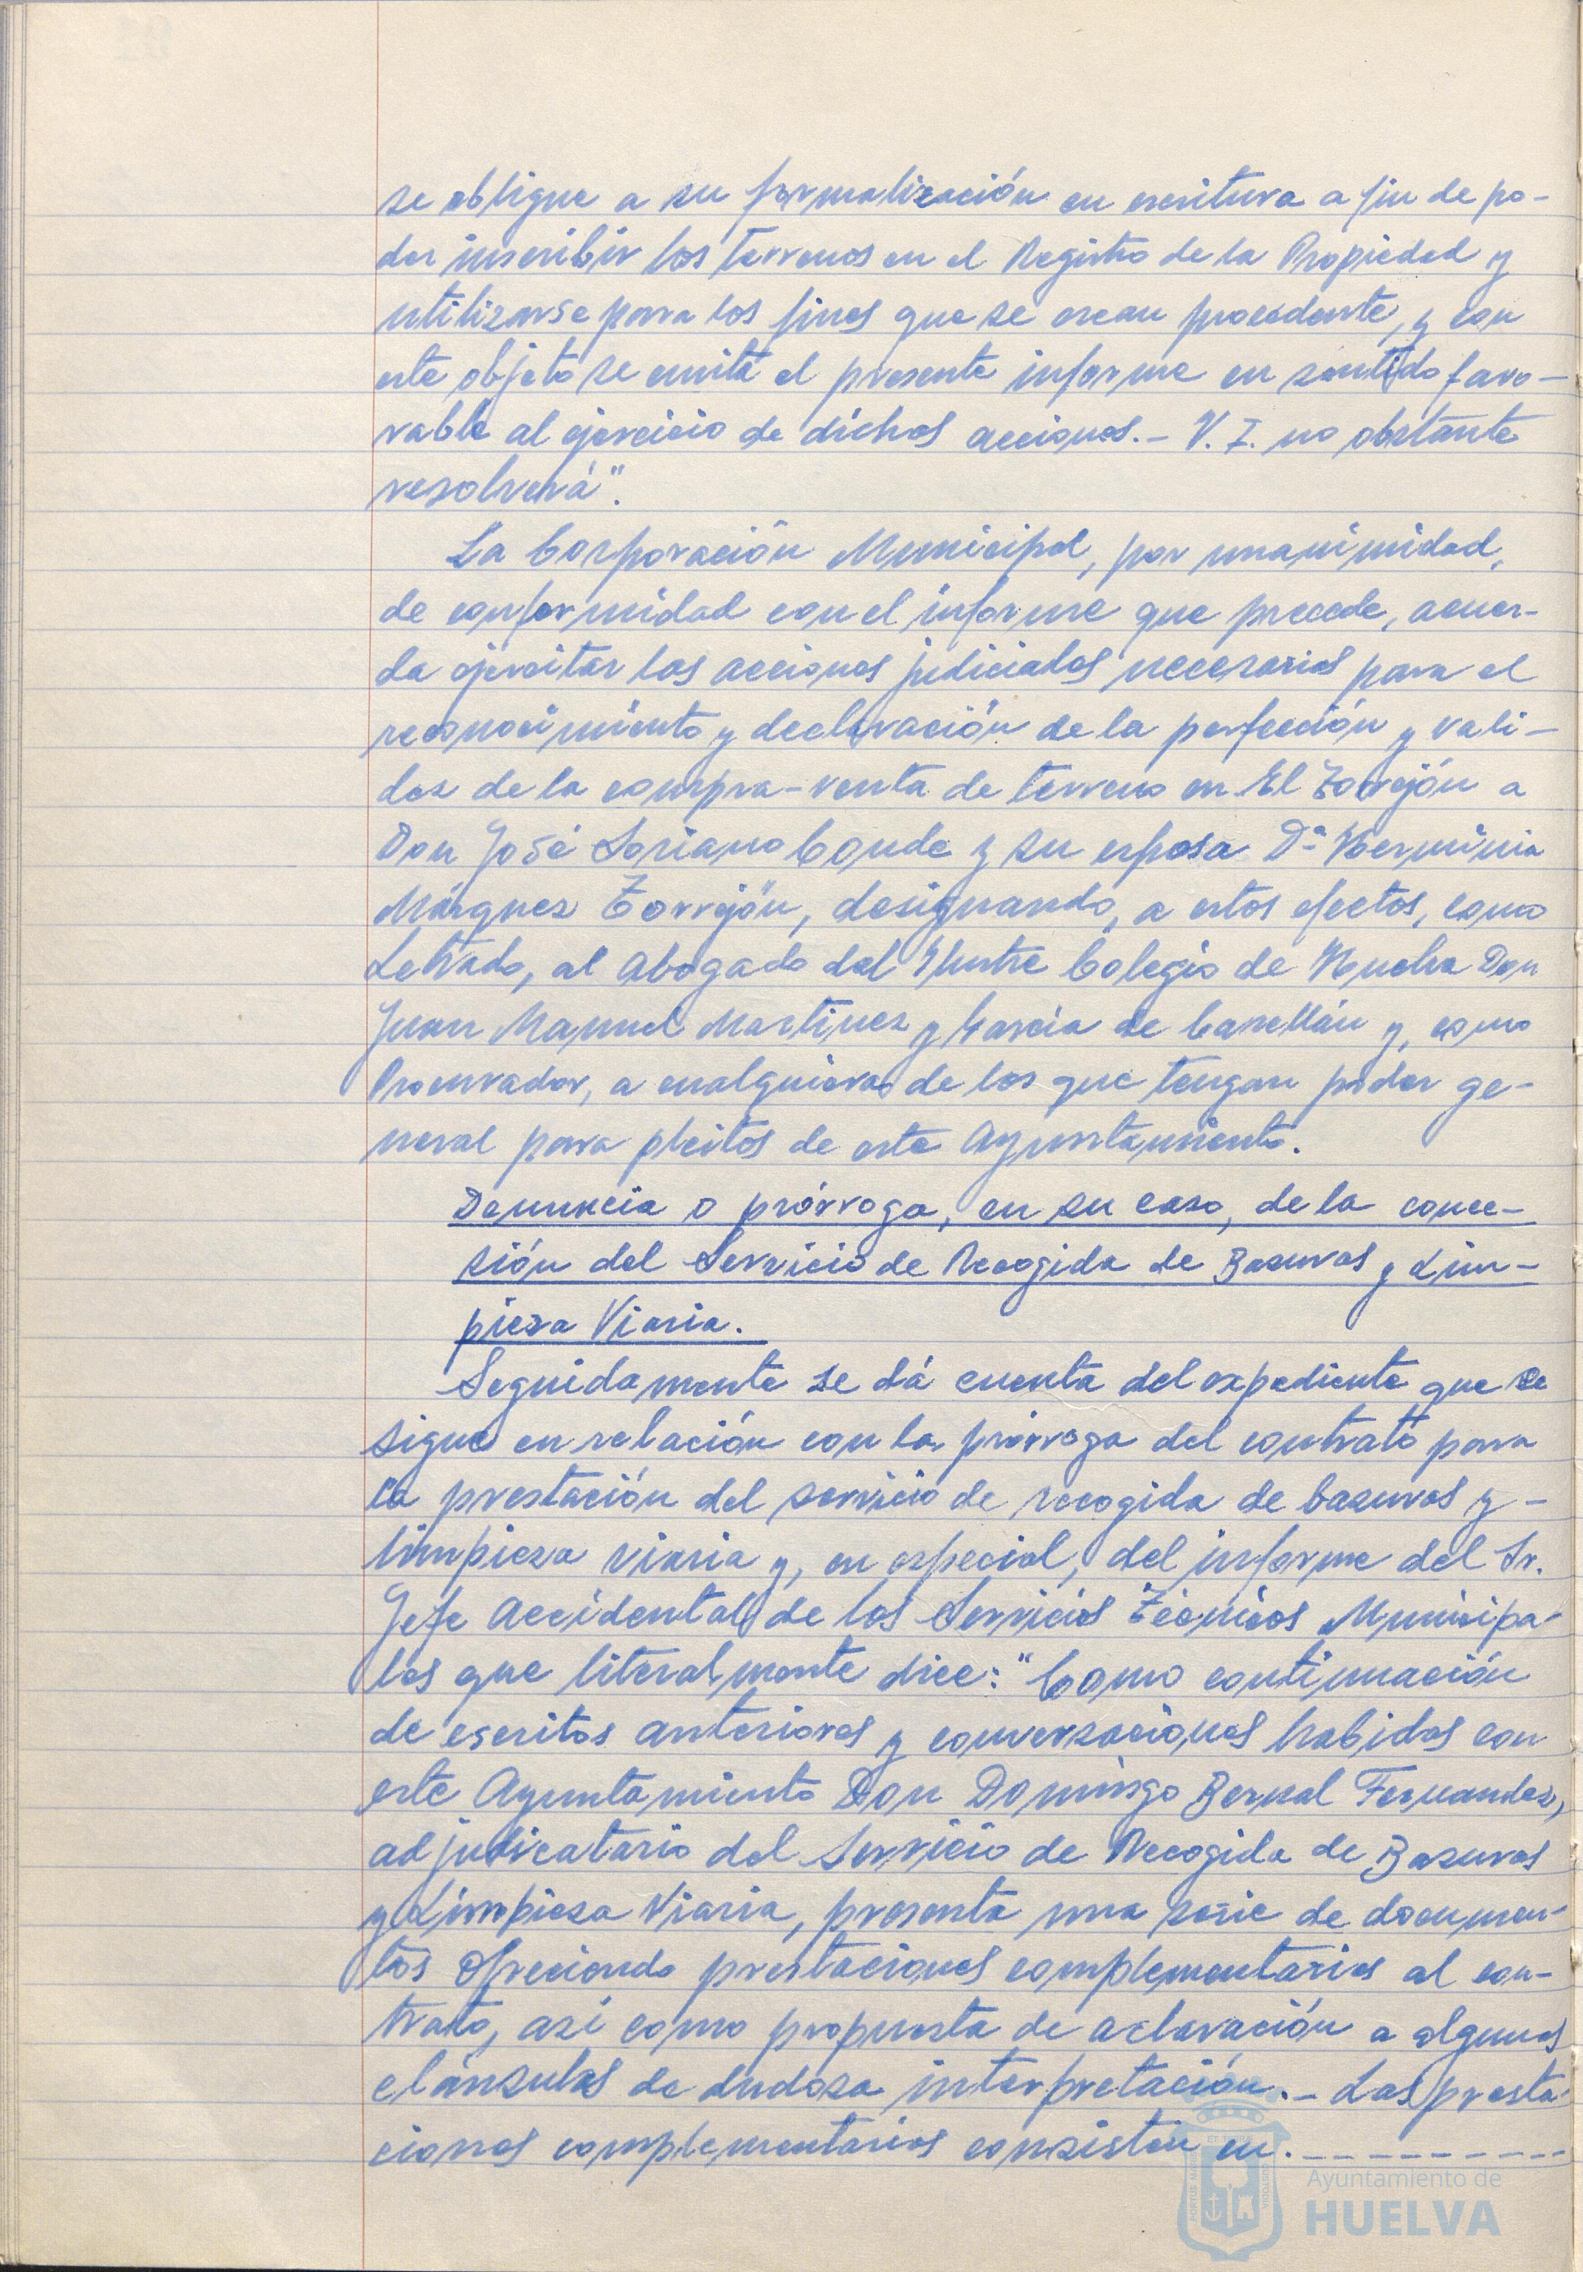 se obligue a su formalización en escritura a fin de po-
der inscribir los terrenos en el Registro de la Propiedad y
utilizarse para los fines que se crean procedente, y con
este objeto se emite el presente informe en sentido favo-
rable al ejercicio de dichas acciones.- V. I. no obstante
resolverá".
La Corporación Municipal, por unanimidad,
de conformidad con el informe que precede, acuer-
da ejercitar las acciones judiciales necesarias para el
reconocimiento y declaración de la perfección y vali-
dez de la compra-venta de terreno en El Torrejón a
Don José Soriano Conde y su esposa Dª Herminia
Márquez Torrejón, designando, a estos efectos, como
Letrado, al Abogado del Ilustre Colegio de Huelva Don
Juan Manuel Martinez y García de Casellán y, como
Procurador, a cualquiera de los que tengan poder ge-
neral para pleitos de este Ayuntamiento.
Denuncia o prórroga, en su caso, de la conce-
sión del Servicio de Recogida de Basuras y Lim-
pieza Viaria.
Seguidamente se dá cuenta del expediente que se
sigue en relación con la prórroga del contrato para
la prestación del servicio de recogida de basuras y -
limpieza viaria y, en especial, del informe del Sr.
Jefe Accidental de los Servicios Técnicos Municipa-
les que literalmente dice: "Como continuación
de escritos anteriores y conversaciones habidas con
este Ayuntamiento Don Domingo Bernal Fernandez,
adjudicatario del Servicio de Recogida de Basuras
y Limpieza Viaria, presenta una serie de documen-
tos ofreciendo prestaciones complementarias al con-
trato, así como propuesta de aclaración a algunas
cláusulas de dudosa interpretación.- Las presta-
ciones complementarias consisten en.---------
ET TERRAE
PORTUS MARIS
CUSTODIA
Ayuntamiento de
HUELVA